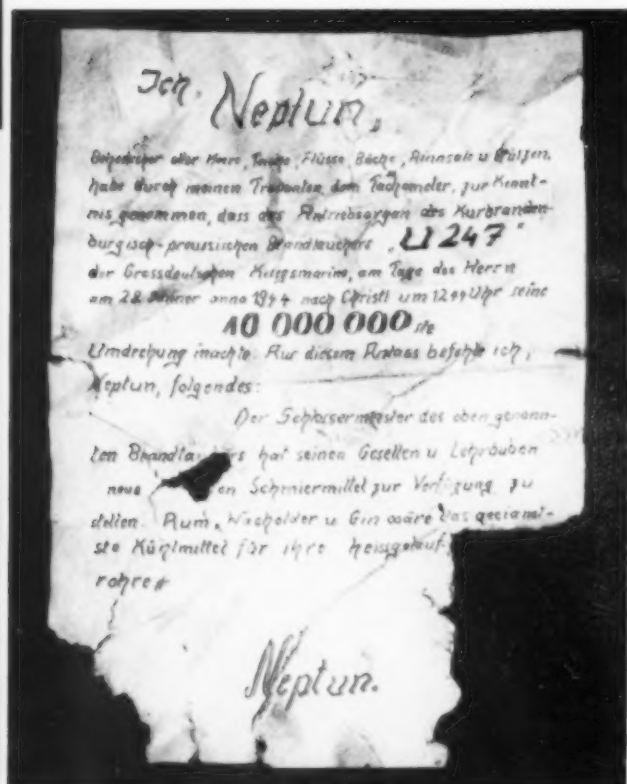 Ich, Neptun,
Beherrscher aller Meere, Teiche, Flüsse, Bäche, Rinnsale u Pfützen,
habe durch meinen Trabanten dem Tachometer, zur Kennt-
nis genommen, dass das Antriebsorgan des Kurbranden-
burgisch-preussischen Brandtauchers "U 247"
der Grossdeutschen Kriegsmarine, am Tage des Herrn
am 28. Jänner anno 1944 nach Christi um 1244 Uhr seine
10 000 000 ste
Umdrehung machte. Aus diesem Anlass befehle ich,
Neptun, folgendes:
Der Schlossermeister des oben genann-
ten Brandtau rs hat seinen Gesellen u Lehrbuben
neue en Schmiermittel zur Verfügung zu
stellen. Rum, Wacholder u Gin wäre das geeignet-
ste Kühlmittel für ihre heissgelauf
rohre
Neptun.